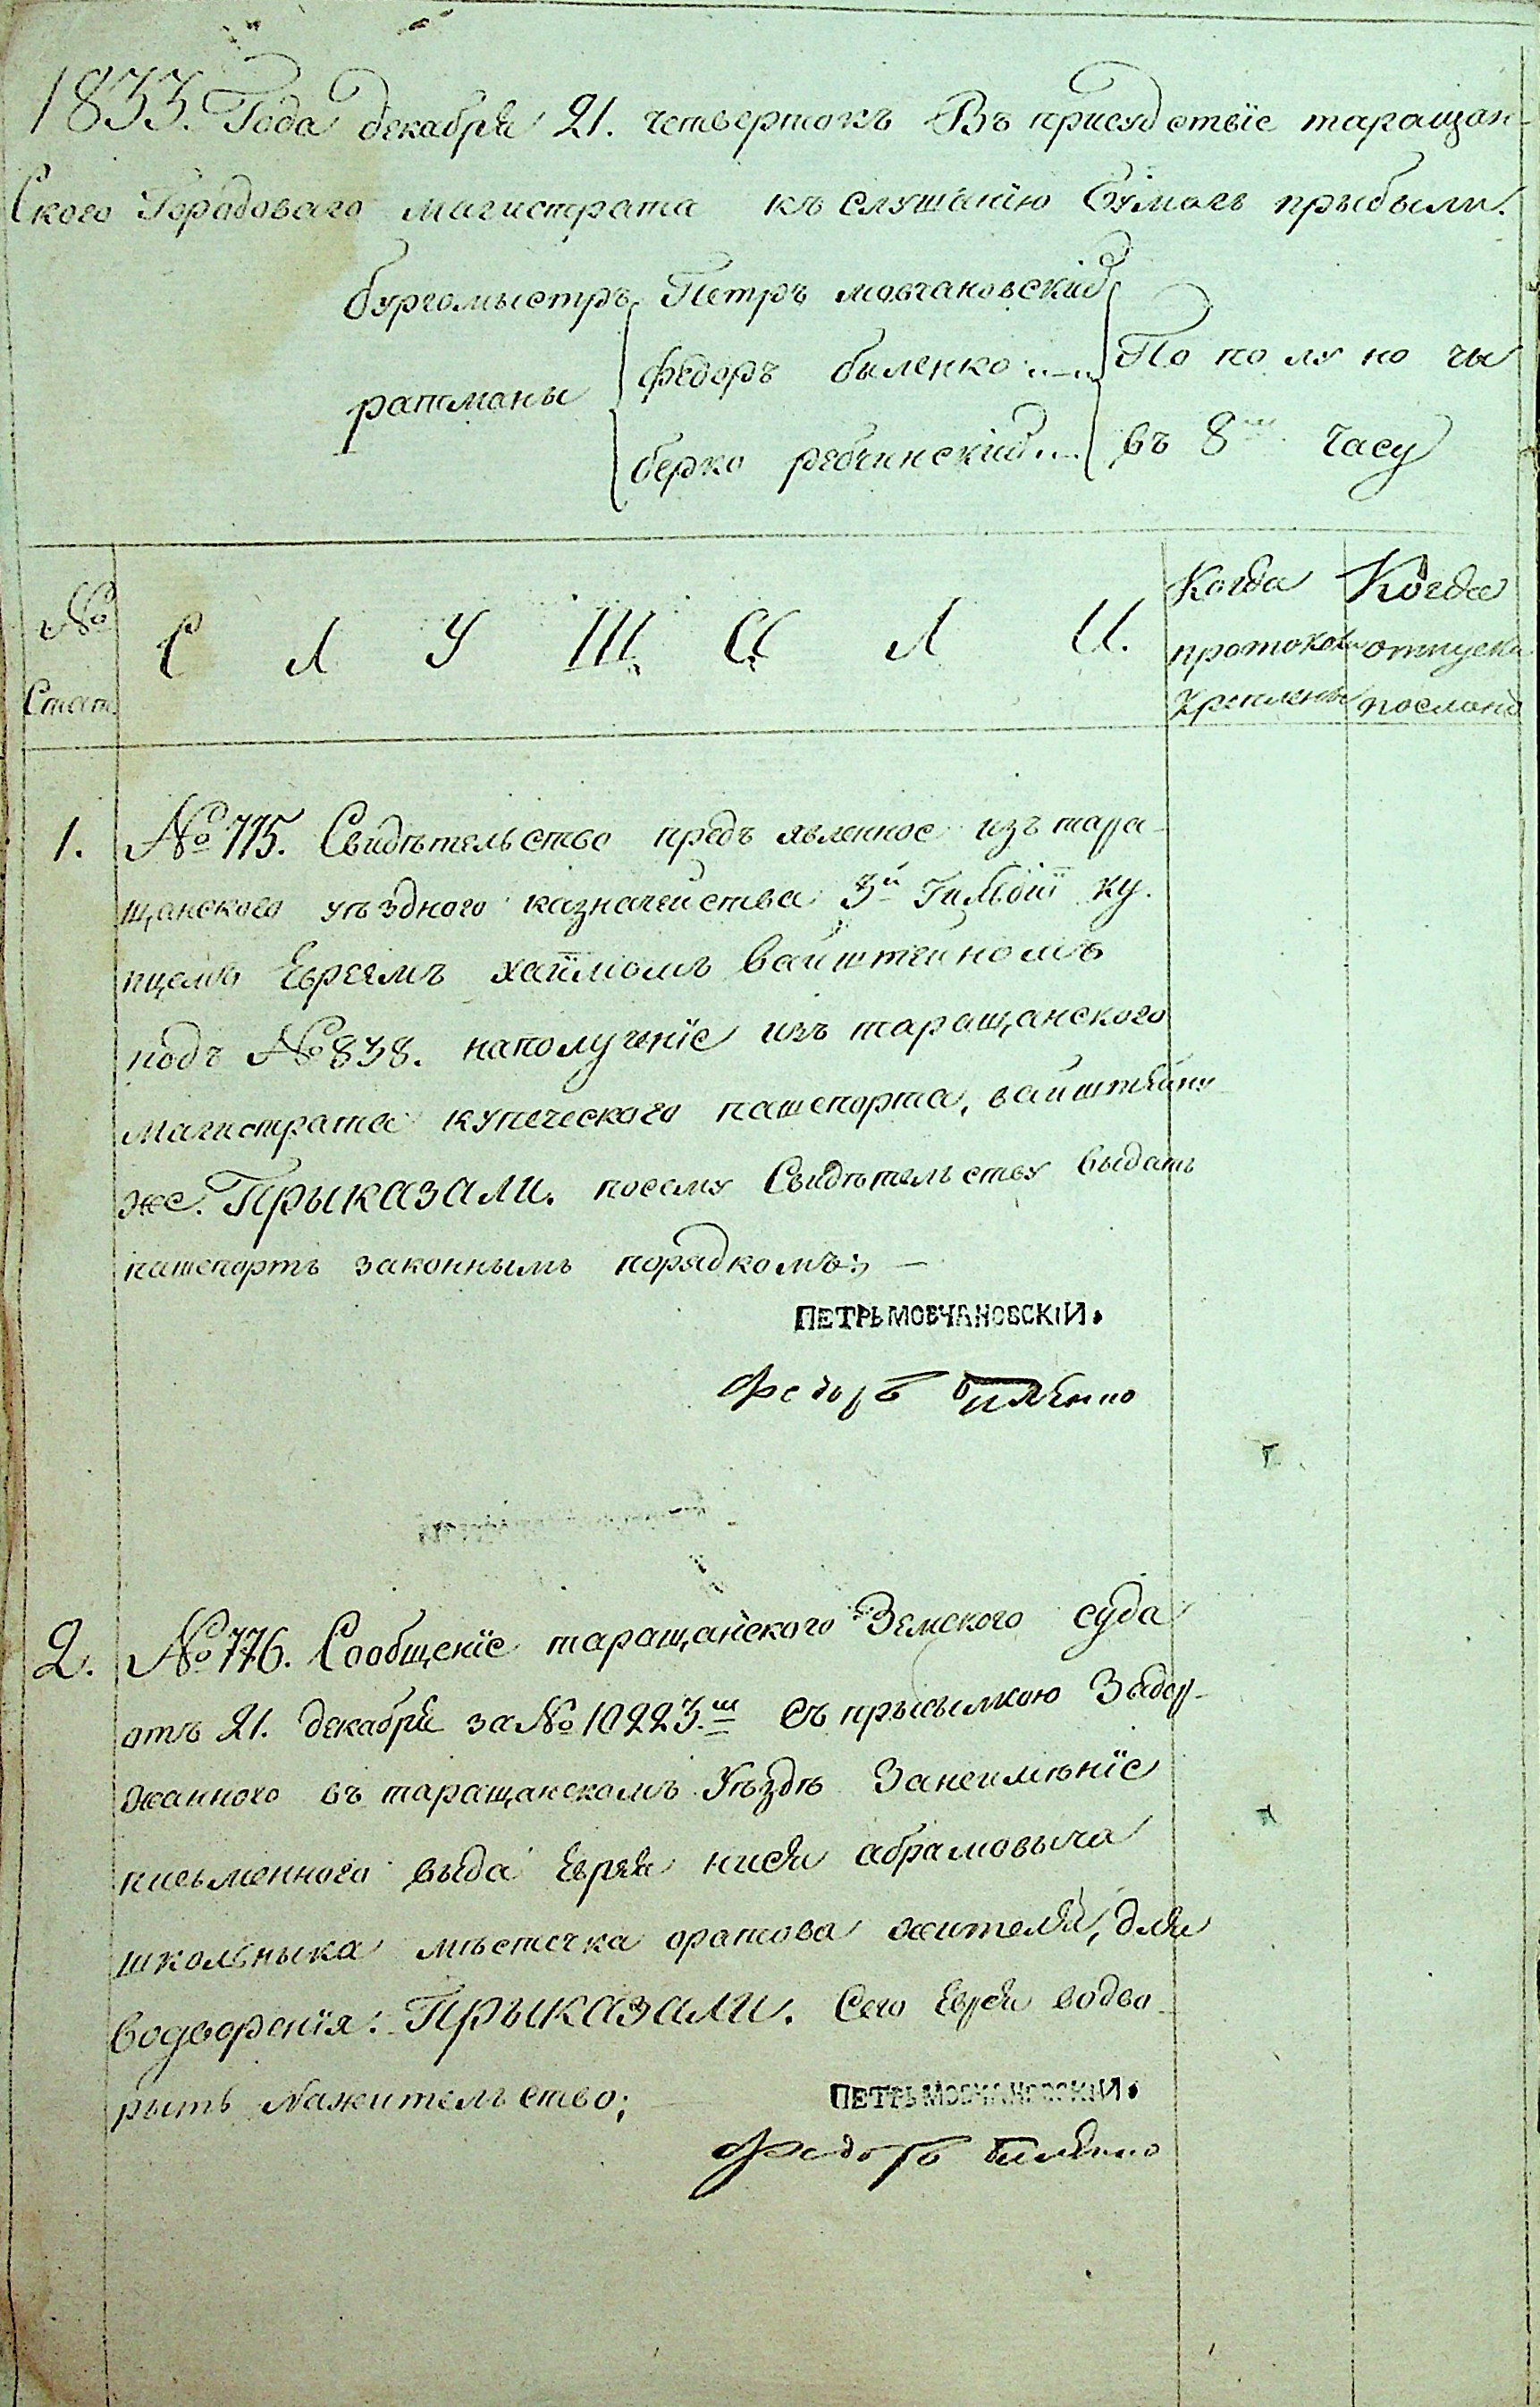 1833. Года декабря 21. четвертокъ Въ присудствіе таращан-
Ского Городоваго магистрата къ слушанію бумагъ прыбыли.
бургомыстръ Петръ мовчановскій
ратманы
федоръ биленко
берко ребчинскій
По полу но чы
въ 8м часу
№
Стат.
С Л У Ш А Л И.
Когда
протоколы
Когда
отпуски
посланы
1. № 775. Свидѣтельство предъ явленное изъ тара-
щанского уѣздного казначейства 3й Гильдіи ку.
пцемъ Евреямъ хаімомъ вайштейномъ
подъ № 838. наполученіе изъ таращанского
магистрата купеческого пашепорта, вайштейну
же. Прыказали. посему Свидѣтельству выдать
пашепортъ законнымъ порядкомъ; —
ПЕТРЬ МОВЧАНОВСКІЙ.
Федоръ биленко
2. № 776. Сообщеніе таращанского Земского суда
отъ 21. декабря за № 10223.м Съ прысылкою Задер-
жанного въ таращанскомъ Уѣздѣ Занеимѣніе
письменного выда Еврея нися абрамовыча
школьныка мѣстечка оратова жителя, для
водворенія: Прыказали. Сего Еврея водво-
рыть Нажительство;
ПЕТРЬ МОВЧАНОВСКІЙ.
Федоръ биленко